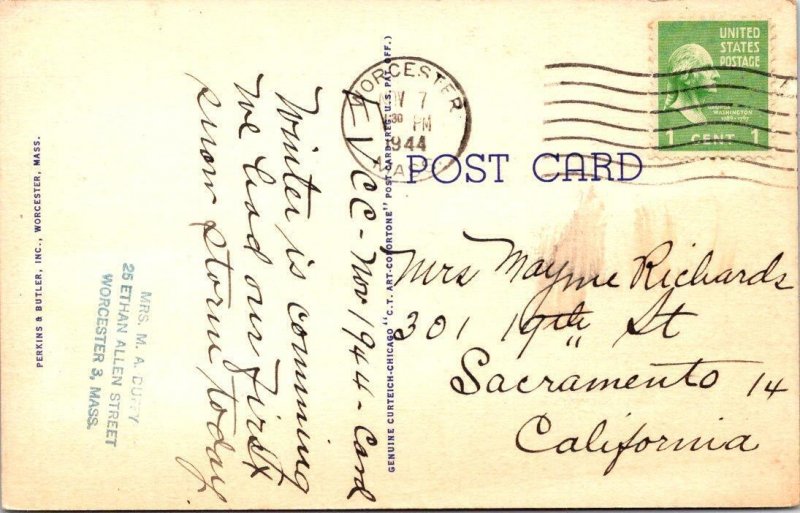 PERKINS & BUTLER, INC., WORCESTER, MASS.
MRS. M. A. DUFFY
25 ETHAN ALLEN STREET
WORCESTER 3, MASS.
EVCC-Nov 1944-Card
Winter is comming
We had our first
snow storm today.
GENUINE CURTEICH-CHICAGO "C.T. ART-COLORTONE" POST CARD (REG. U.S. PAT. OFF.)
WORCESTER
NOV 7
30 PM
1944
MASS.
UNITED
STATES
POSTAGE
GEORGE
WASHINGTON
1 CENT 1
POST CARD
Mrs Mayme Richards
301 19th St
Sacramento 14
California